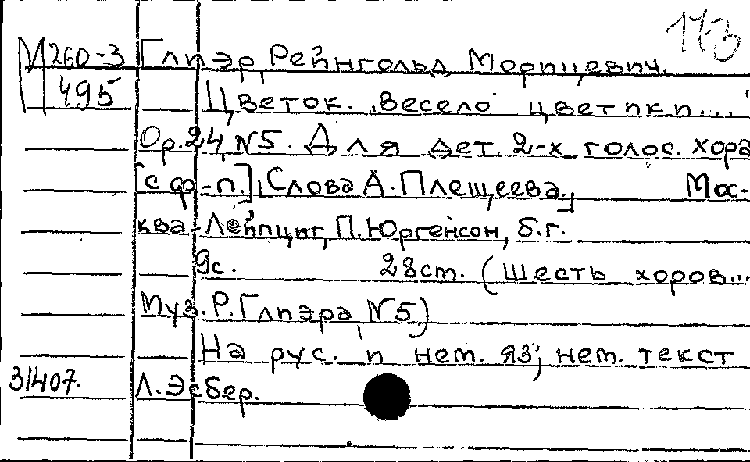 173
М 260-3 Глиэр, Рейнгольд Морицевич.
495 Цветок. „Весело цветики...."
Ор.24, N5. Для дет. 2-х голос. хора
[с ф-п.], Слова А. Плещеева.] Мос-
ква-Лейпциг, П. Юргенсон, б.г.
9с. 28см. (Шесть хоров...
Муз. Р. Глиэра, N5)
На рус. и нем. яз; нем. текст
31407. Л. Эсбер.